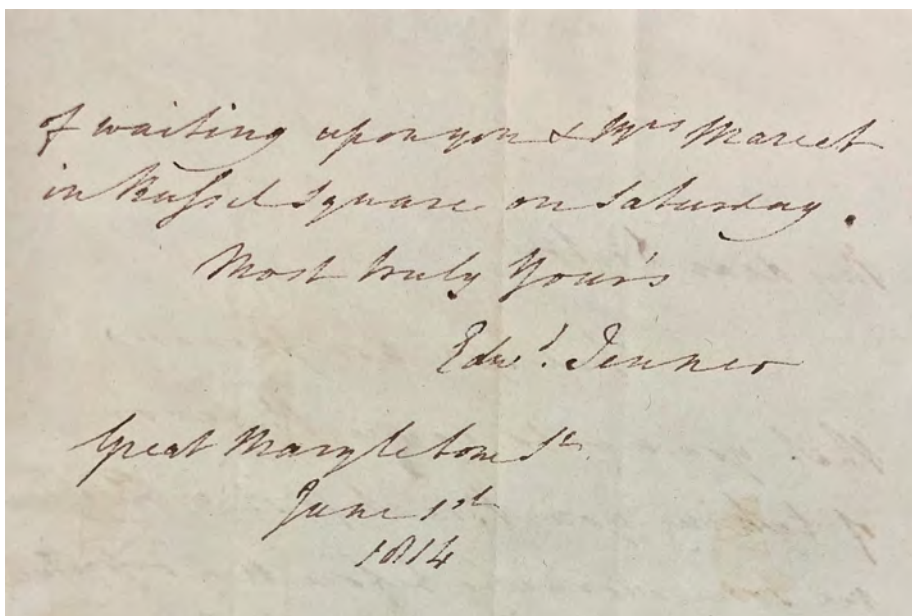 of waiting upon you & Mrs Marcet
in Russel Square on Saturday.
Most truly Yours
Edwd. Jenner
Great Marylebone St.
June 1st
1814